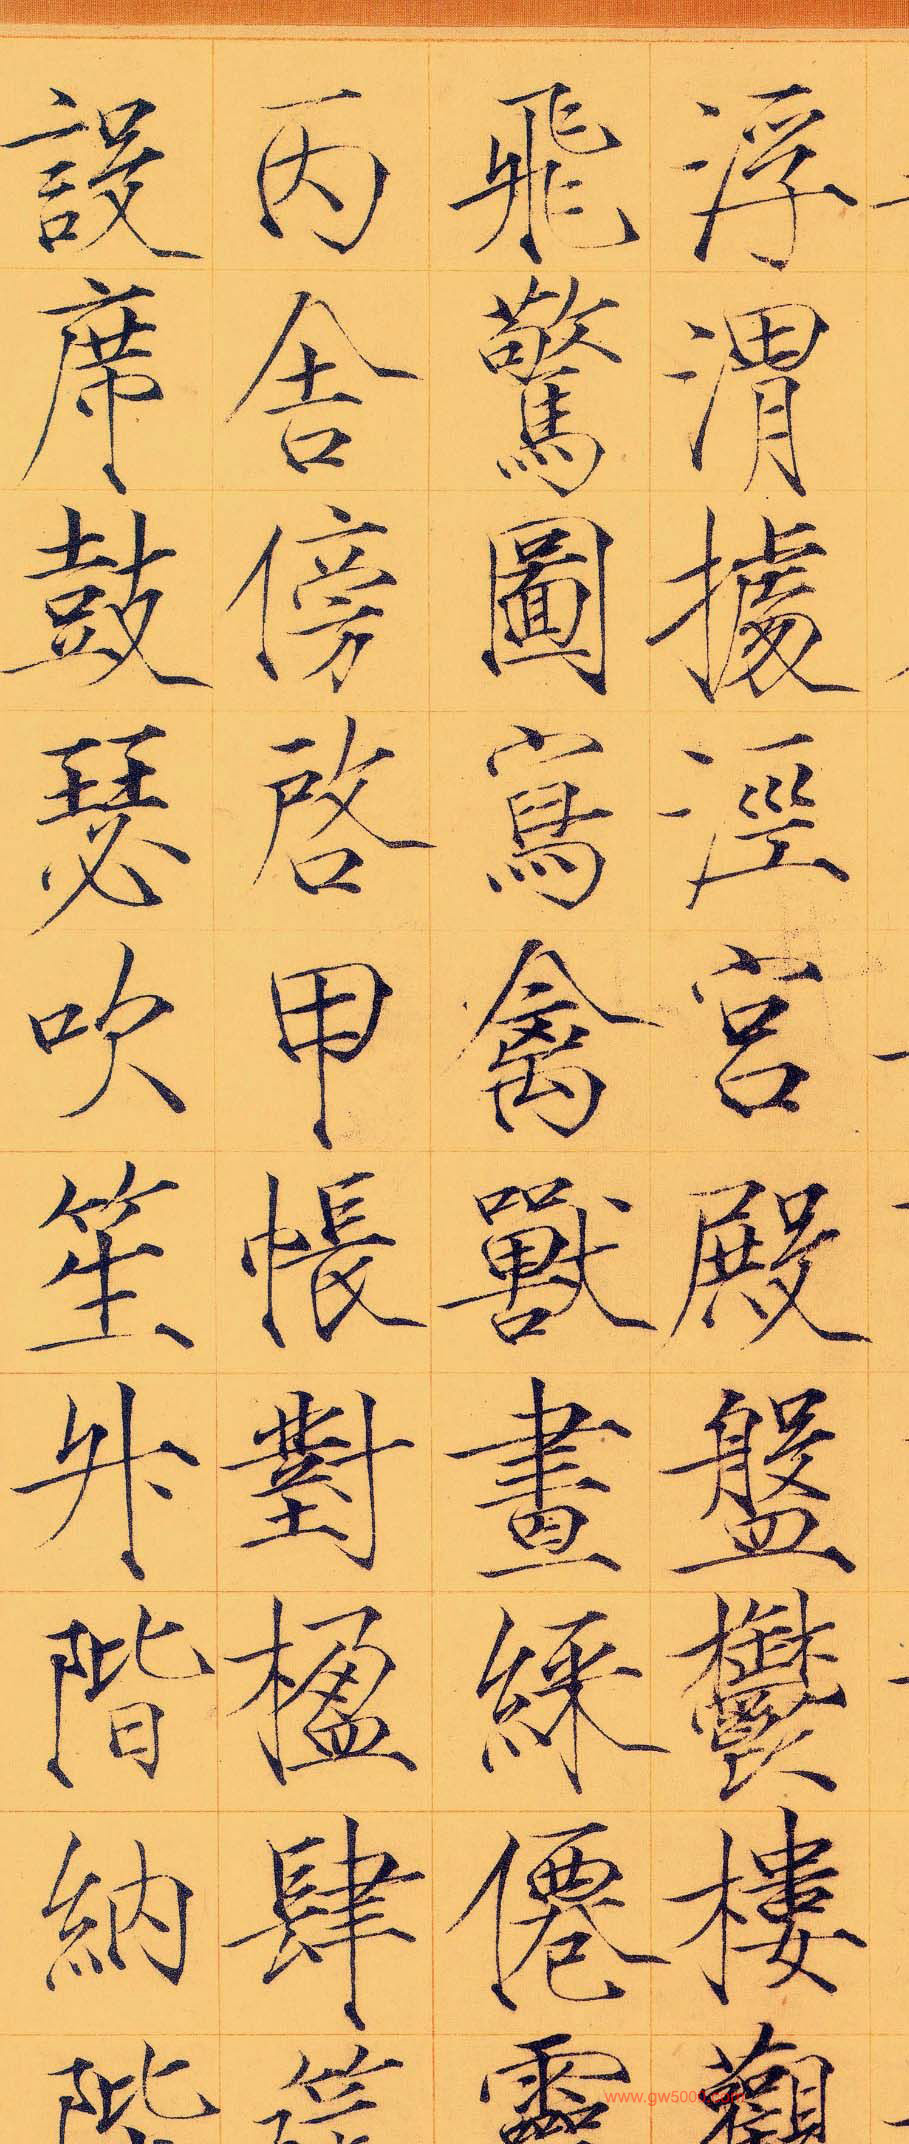 浮渭據涇宮殿盤鬱樓觀
飛驚圖寫禽獸畫綵僊靈
丙舍傍啓甲帳對楹肆筵
設席鼓瑟吹笙升階納陛
www.gw500